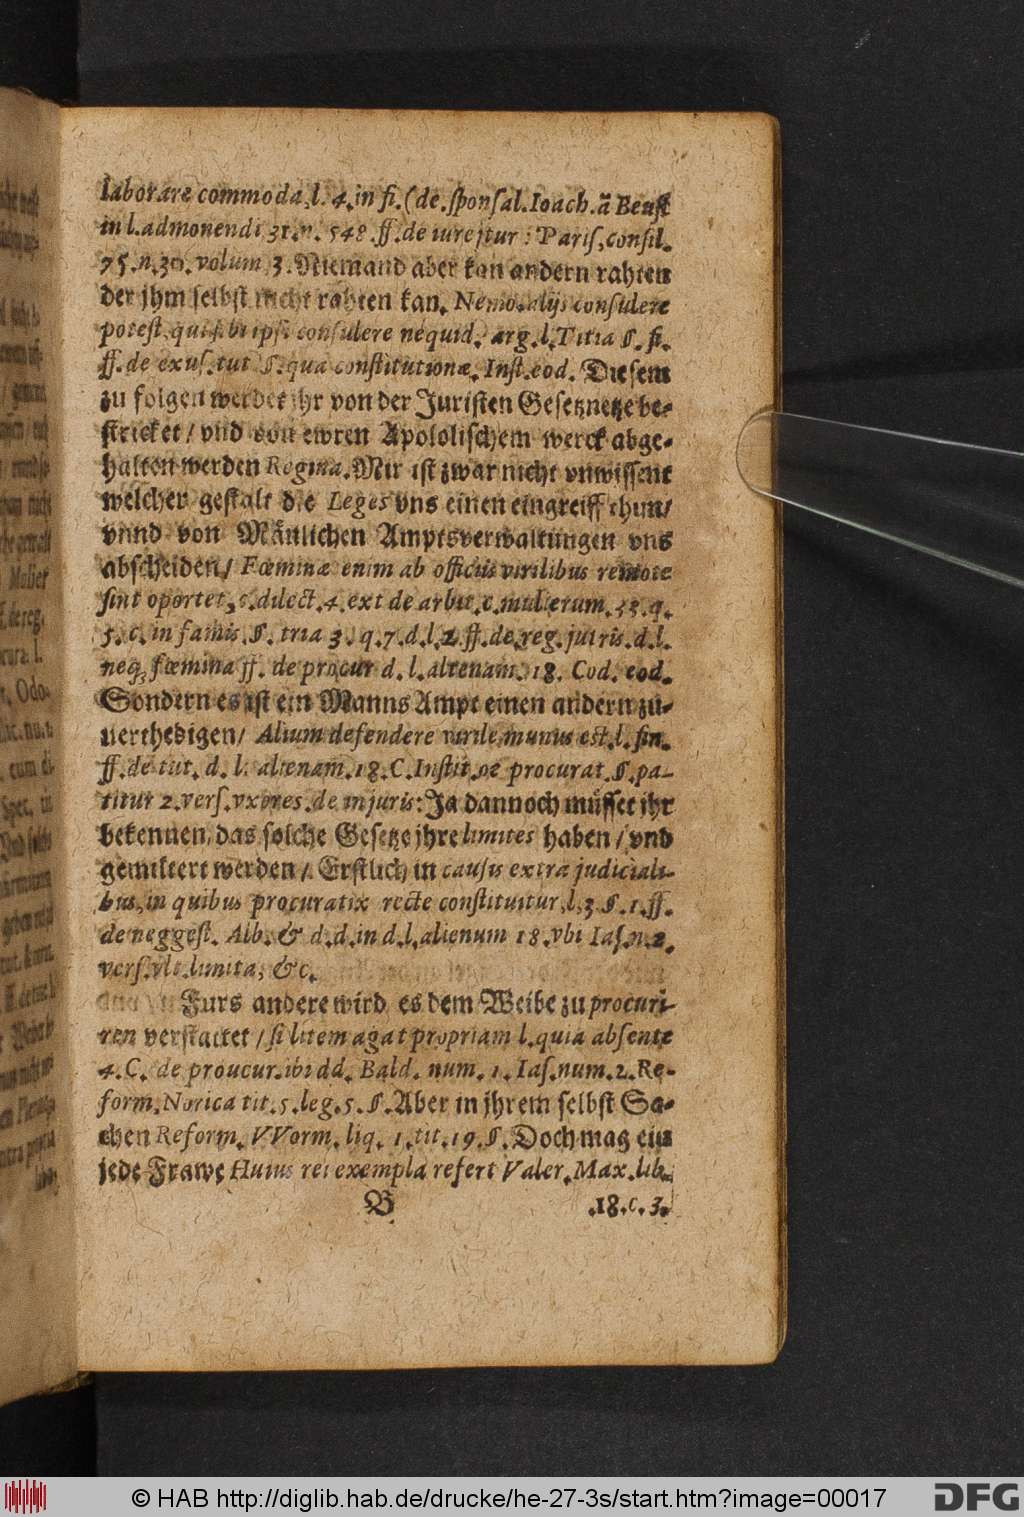 laborare commoda, l. 4. in fi. (de. ſponſal. Ioach. â Beuſt
in l. admonendi 31. n. 548. ff. de iurejur: Pariſ, conſil.
75. n. 30. volum 3. Niemand aber kan andern rahten
der jhm ſelbſt nicht rahten kan. Nemo alijs conſulere
poteſt, qui ſibi ipſi conſulere nequid. arg. l. Titia §. fi.
ff. de exuſ. tut §. qua conſtitutionæ. Inſt. eod. Dieſem
zu folgen werdet ihr von der Juriſten Geſetznetze be-
ſtricket / vnd von ewren Apololiſchem werck abge-
halten werden Regina. Mir iſt zwar nicht vnwiſſent
welcher geſtalt die Leges vns einen eingreiff thun/
vnnd von Mänlichen Amptsverwaltungen vns
abſcheiden/ Fœminæ enim ab officiis virilibus remote
ſint oportet, c. dilect. 4. ext de arbit. c. mulierum. 33. q.
5. c. in famis. §. tria 3. q. 7. d. l. 2. ff. de reg. juris. d. l.
neq; fœmina ff. de procur d. l. alienam. 18. Cod. eod.
Sondern es iſt ein Manns Ampt einen andern zu-
uerthedigen/ Alium defendere virile munus eſt. l. fin.
ff. de tut. d. l. alienam. 18. C. Inſtit. de procurat. §. pa-
titur 2. verſ. vxores. de injuris: Ja dannoch müſſet jhr
bekennen, das ſolche Geſetze jhre limites haben / vnd
gemiltert werden /. Erſtlich in cauſis extra judiciali-
bus, in quibus procuratix recte conſtituitur, l, 3 §. 1. ff.
de neggeſt. Alb. & d. d. in d. l, alienum 18. vbi Iaſ. n. 2.
verſ. vlt. limita, &c.
Furs andere wird es dem Weibe zu procuri-
ren verſtattet / ſi litem agat propriam l. quia abſente
4. C. de proucur. ibi dd. Bald. num. 1. Iaſ. num. 2. Re-
form. Norica tit. 5. leg. 5. §. Aber in jhrem ſelbſt Sa-
chen Reform. VVorm. liq. 1. tit. 19. §. Doch mag ein
jede Frawe Huius rei exempla refert Valer. Max. lib.
B .18. c. 3.
© HAB http://diglib.hab.de/drucke/he-27-3s/start.htm?image=00017
DFG